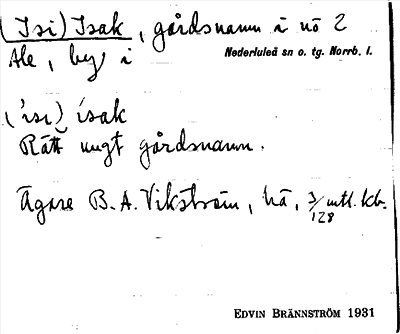 (Isi) Isak, gårdsnamn i nö 2
Ale, by i Nederluleå sn o. tg. Norrb. l.
('isi) ísak
Rätt ungt gårdsnamn.
Ägare B. A. Vikström, hä, 3/128 mtl. kb.
EDVIN BRÄNNSTRÖM 1931